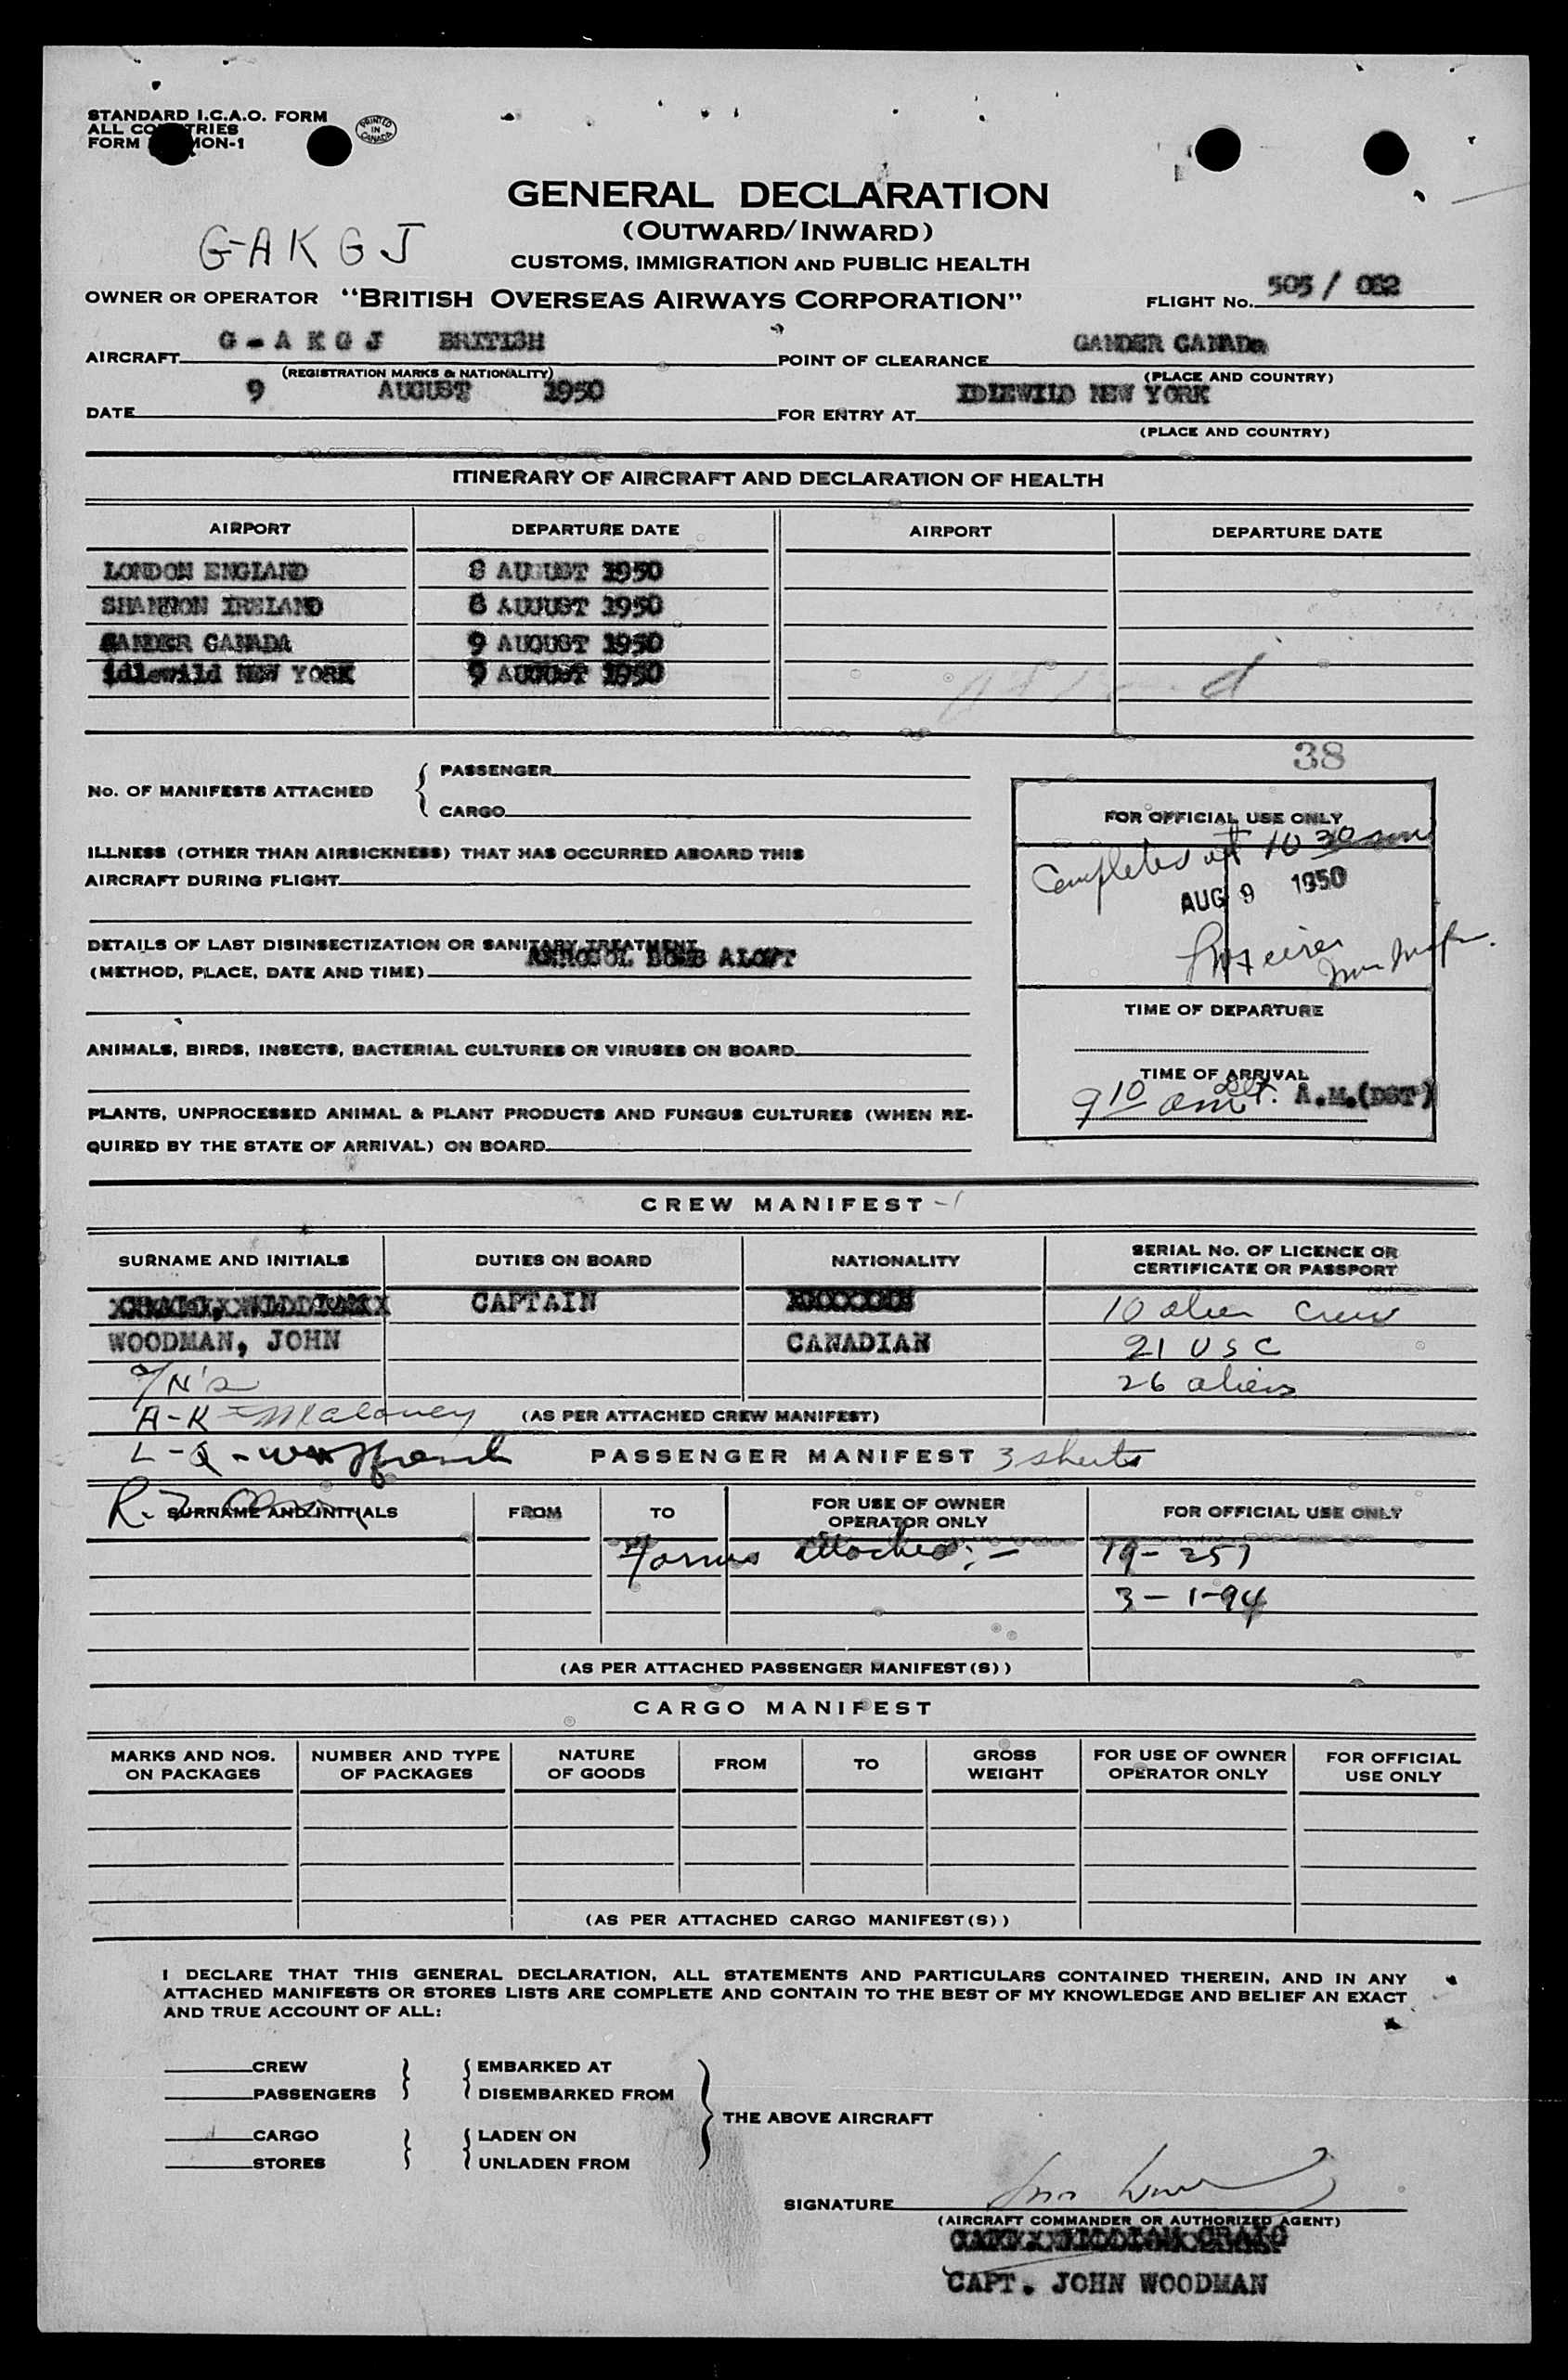 STANDARD I.C.A.O. FORM
ALL COUNTRIES
FORM MON-1
PRINTED IN CANADA
GENERAL DECLARATION
(OUTWARD/INWARD)
G-AKGJ
CUSTOMS, IMMIGRATION AND PUBLIC HEALTH
OWNER OR OPERATOR "BRITISH OVERSEAS AIRWAYS CORPORATION" FLIGHT No. 505 / 052
AIRCRAFT G-AKGJ BRITISH POINT OF CLEARANCE GANDER CANADa
(REGISTRATION MARKS & NATIONALITY) (PLACE AND COUNTRY)
DATE 9 AUGUST 1950 FOR ENTRY AT IDLEWILD NEW YORK
(PLACE AND COUNTRY)
ITINERARY OF AIRCRAFT AND DECLARATION OF HEALTH
AIRPORT DEPARTURE DATE AIRPORT DEPARTURE DATE
LONDON ENGLAND 8 AUGUST 1950
SHANNON IRELAND 8 AUGUST 1950
GANDER CANADA 9 AUGUST 1950
idlewild NEW YORK 9 AUGUST 1950
38
No. OF MANIFESTS ATTACHED { PASSENGER
CARGO
FOR OFFICIAL USE ONLY
Completed at 10 30 am
AUG 9 1950
ILLNESS (OTHER THAN AIRSICKNESS) THAT HAS OCCURRED ABOARD THIS
AIRCRAFT DURING FLIGHT
DETAILS OF LAST DISINSECTIZATION OR SANITARY TREATMENT
(METHOD, PLACE, DATE AND TIME) AEROSOL BOMB ALOFT
TIME OF DEPARTURE
ANIMALS, BIRDS, INSECTS, BACTERIAL CULTURES OR VIRUSES ON BOARD
TIME OF ARRIVAL
9 10 am A.M.(DST)
PLANTS, UNPROCESSED ANIMAL & PLANT PRODUCTS AND FUNGUS CULTURES (WHEN RE-
QUIRED BY THE STATE OF ARRIVAL) ON BOARD
CREW MANIFEST -1
SURNAME AND INITIALS DUTIES ON BOARD NATIONALITY SERIAL No. OF LICENCE OR
CERTIFICATE OR PASSPORT
CAPTAIN 10 alien crew
WOODMAN, JOHN CANADIAN 21 USC
26 aliens
A-K - Maloney (AS PER ATTACHED CREW MANIFEST)
L-Q - PASSENGER MANIFEST 3 sheets
R-Z
SURNAME AND INITIALS FROM TO FOR USE OF OWNER
OPERATOR ONLY FOR OFFICIAL USE ONLY
Forms attached:- 19-257
3 - 1-94
(AS PER ATTACHED PASSENGER MANIFEST(S))
CARGO MANIFEST
MARKS AND NOS.
ON PACKAGES NUMBER AND TYPE
OF PACKAGES NATURE
OF GOODS FROM TO GROSS
WEIGHT FOR USE OF OWNER
OPERATOR ONLY FOR OFFICIAL
USE ONLY
(AS PER ATTACHED CARGO MANIFEST(S))
I DECLARE THAT THIS GENERAL DECLARATION, ALL STATEMENTS AND PARTICULARS CONTAINED THEREIN, AND IN ANY
ATTACHED MANIFESTS OR STORES LISTS ARE COMPLETE AND CONTAIN TO THE BEST OF MY KNOWLEDGE AND BELIEF AN EXACT
AND TRUE ACCOUNT OF ALL:
CREW EMBARKED AT
PASSENGERS DISEMBARKED FROM
THE ABOVE AIRCRAFT
CARGO LADEN ON
STORES UNLADEN FROM
SIGNATURE
(AIRCRAFT COMMANDER OR AUTHORIZED AGENT)
CAPT. JOHN WOODMAN